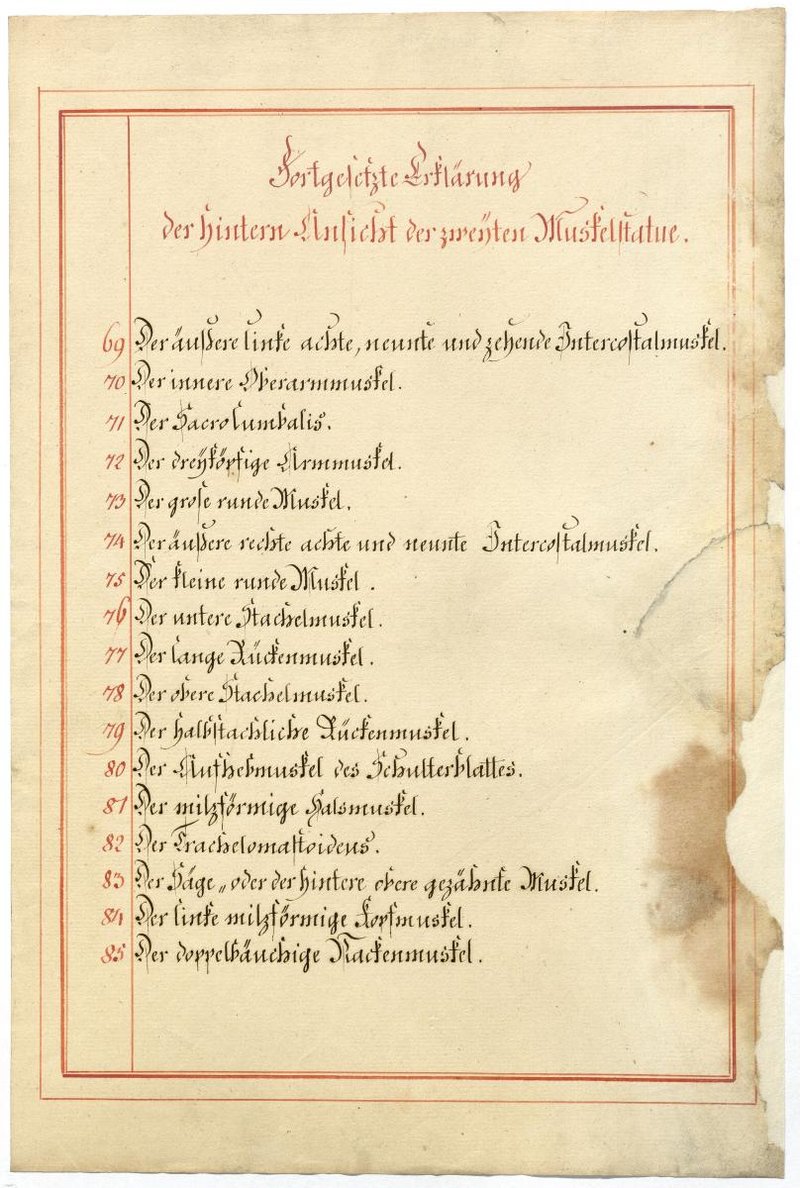 Fortgesetzte Erklärung
der hintern Ansicht der zweÿten Muskelstatue.
69 Der äußere linke achte, neunte und zehende Intercostalmuskel.
70 Der innere Oberarmmuskel.
71 Der Sacrolumbalis.
72 Der dreÿköpfige Armmuskel.
73 Der grose runde Muskel.
74 Der äußere rechte achte und neunte Intercostalmuskel.
75 Der kleine runde Muskel.
76 Der untere Stachelmuskel.
77 Der lange Rückenmuskel.
78 Der obere Stachelmuskel.
79 Der halbstachliche Rückenmuskel.
80 Der Aufhebmuskel des Schulterblattes.
81 Der milzförmige Halsmuskel.
82 Der Trachelomastoideus.
83 Der Säge„ oder der hintere obere gezähnte Muskel.
84 Der linke milzförmige Kopfmuskel.
85 Der doppelbäuchige Nackenmuskel.